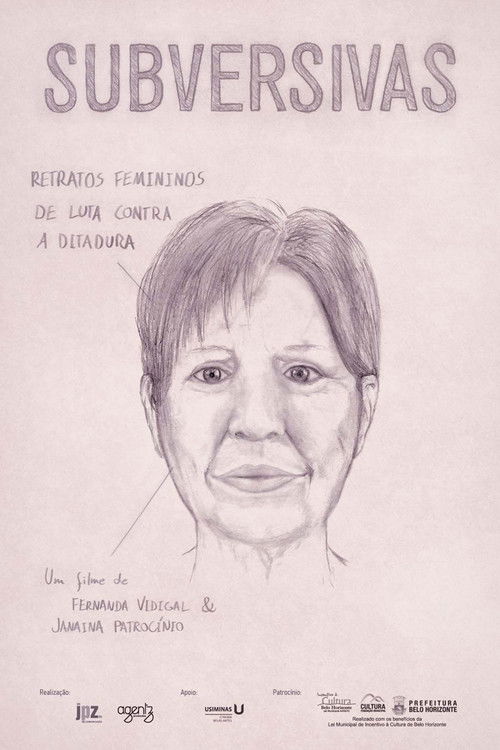 SUBVERSIVAS
RETRATOS FEMININOS
DE LUTA CONTRA
A DITADURA
Um filme de
FERNANDA VIDIGAL &
JANAINA PATROCÍNIO
Realização:
Apoio:
Patrocínio:
jpz
agentz
USIMINAS U
Cultura
Belo Horizonte
CULTURA
PREFEITURA
BELO HORIZONTE
Realizado com os benefícios da
Lei Municipal de Incentivo à Cultura de Belo Horizonte